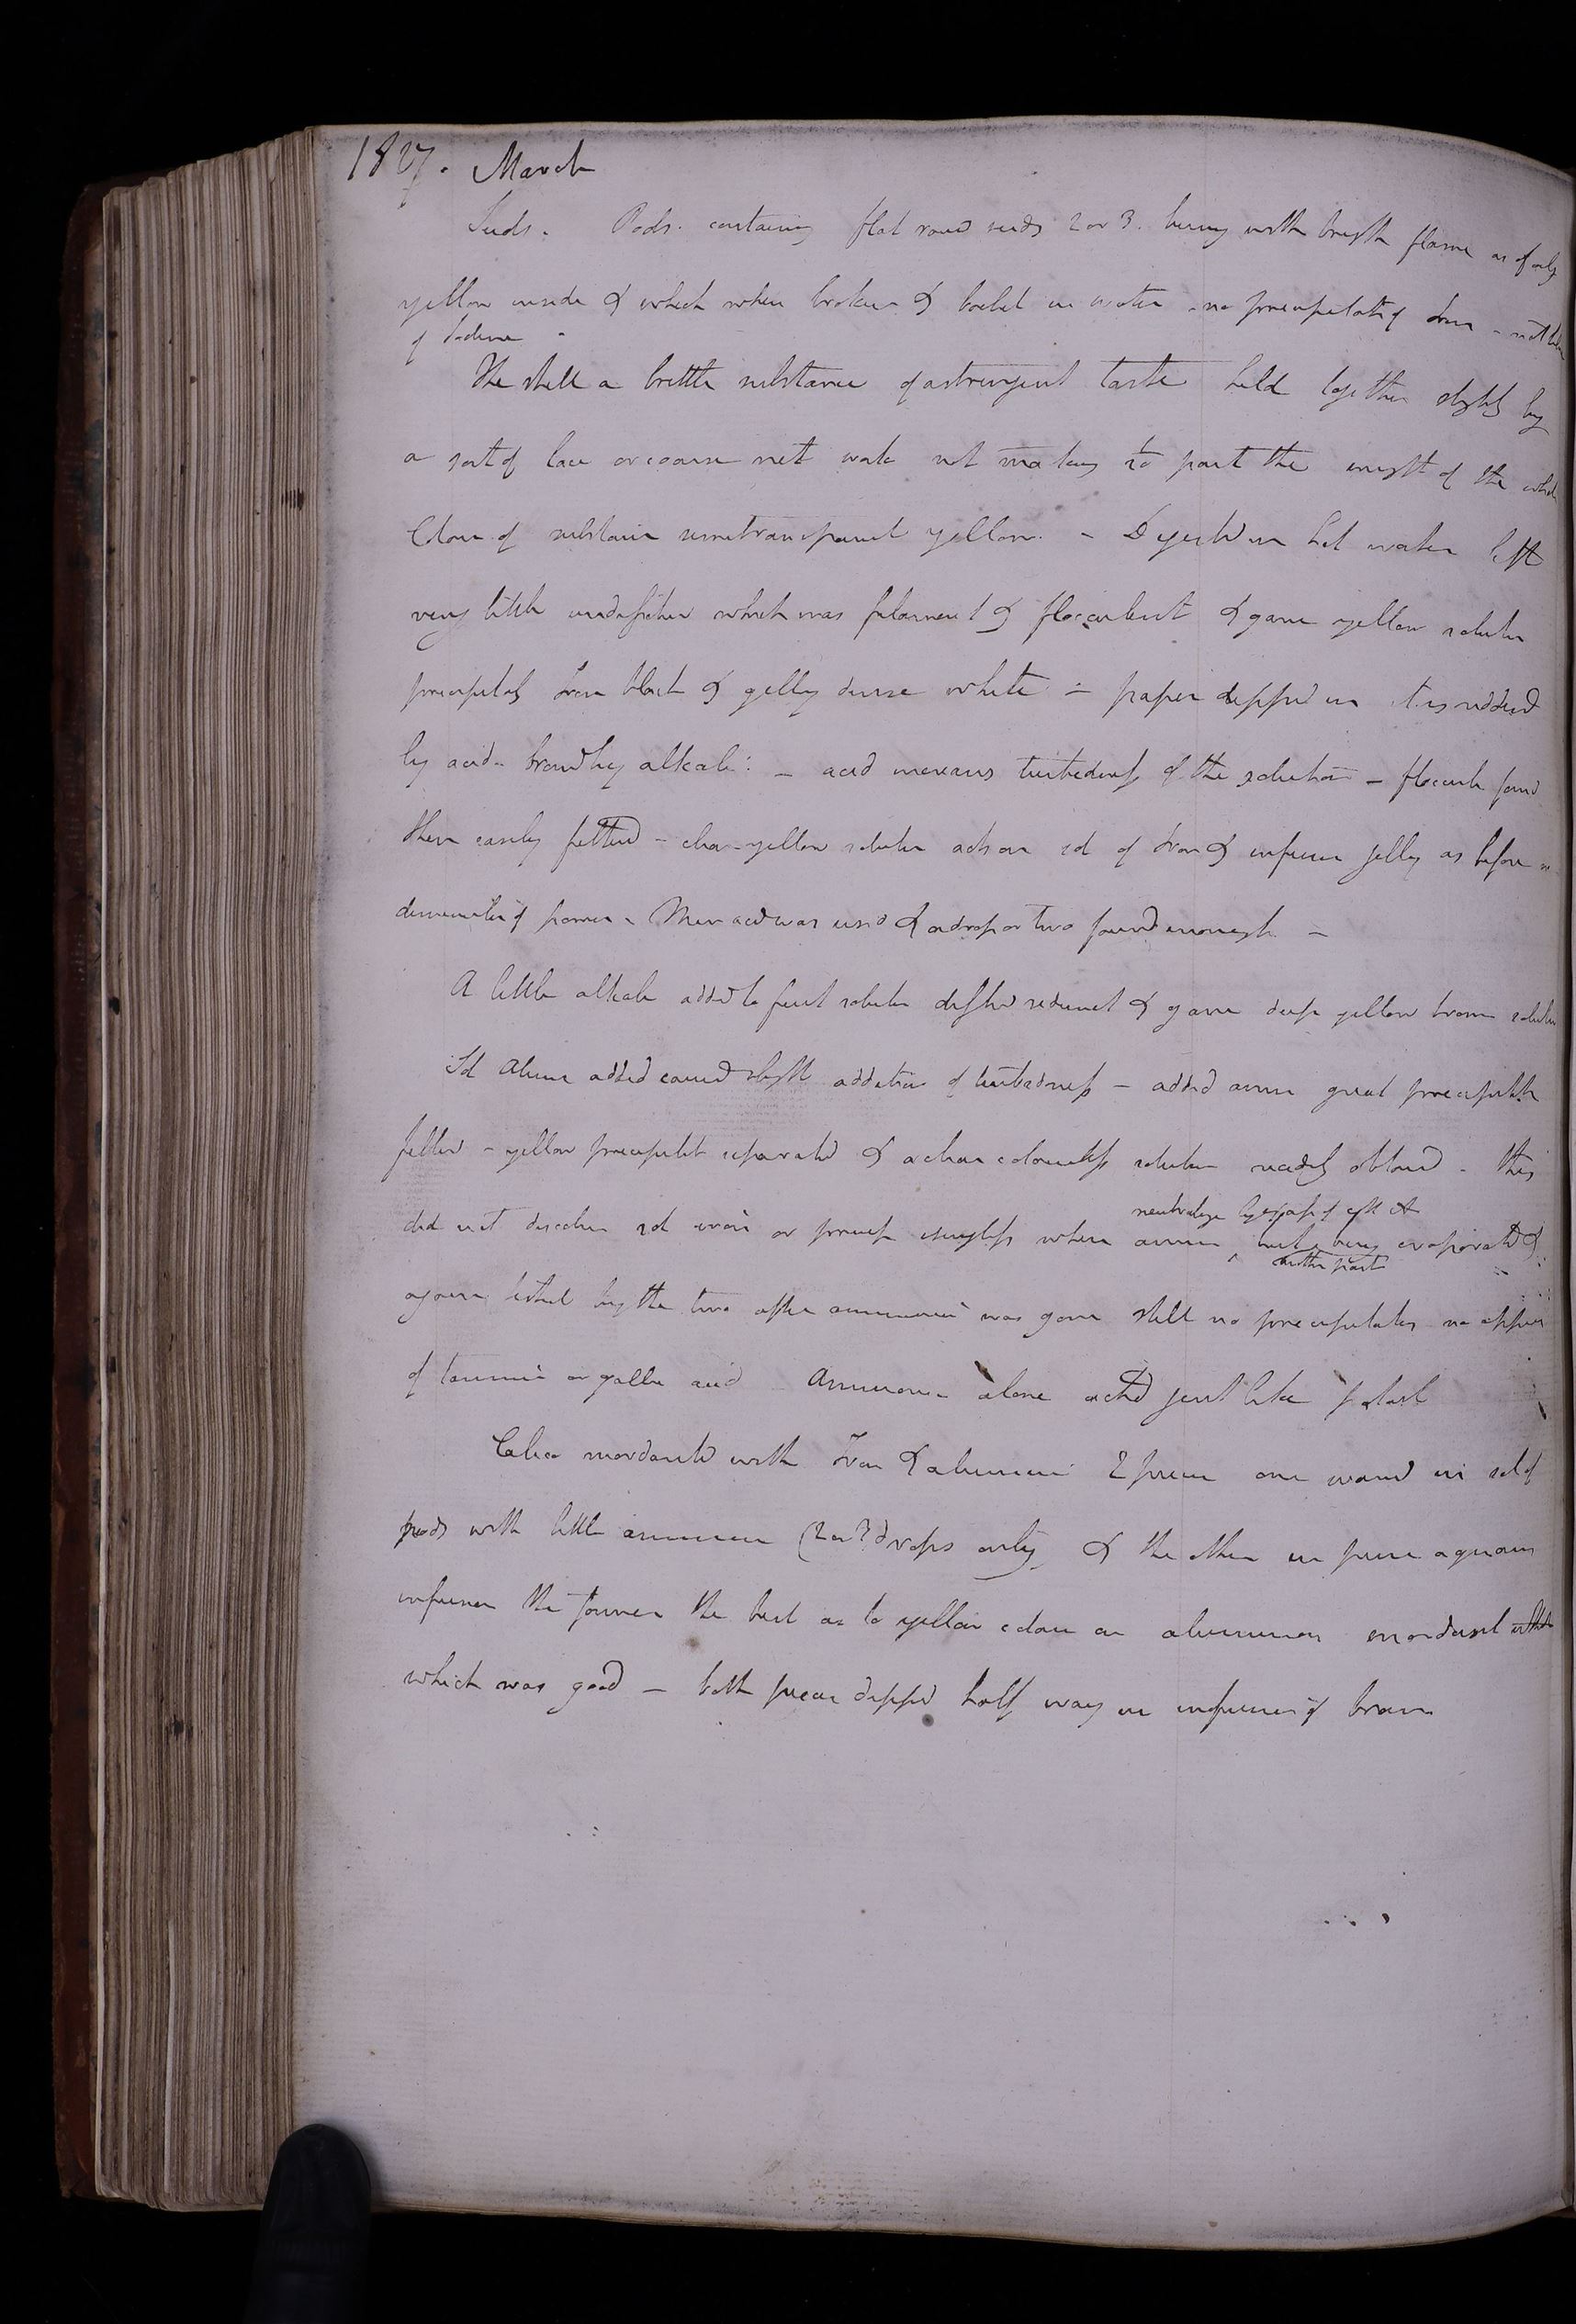 1827. March
Seeds. Pods. containing flat round seeds 2 or 3. burning with bright flame as of oily
yellow inside & which when broken & boiled in water no precipitate of Iron - nothing
of Iodine -
The shell a brittle substance of astringent taste held together slightly by
a sort of lace or coarse net work not making 1/10 part the weight of the whole
Colour of substance semitransparent yellow. - Digested in hot water left
very little undissolved which was filament & flocculent & gave yellow solution
precipitates Iron black & gelly dense white - paper dipped in it is reddened
by acid - brownd by alkali: - acid increases turbidness of the solution - flocculi found
then easily filtered - clear yellow solution acts on sol of Iron & infusion jelly as before no
diminution of power - Mur acid was used & a drop or two found enough -
A little alkali added to first solution dissd sediment & gave deep yellow brown solution
Sol Alum added caused slight addition of turbidness - added ammo great precipitate
filterd - yellow precipitate separated & a clear colourless solution readily obtained - this
neutralize by of A
did not discolour sol iron or precip isinglass when ammon, but being evaporated &
another part
again tested by the two after ammonia was gone still no precipitates no appear
of tannin or gallic acid Ammonia alone acted just like potash
Calico mordanted with Iron & alumina 2 pieces one warmd in sol of
pods with little ammonia (2 or 3 drops only & the other in pure aqueous
infusion the former the best as to yellow colour on aluminous mordant
which was good - both pieces dipped half way in infusion of bran